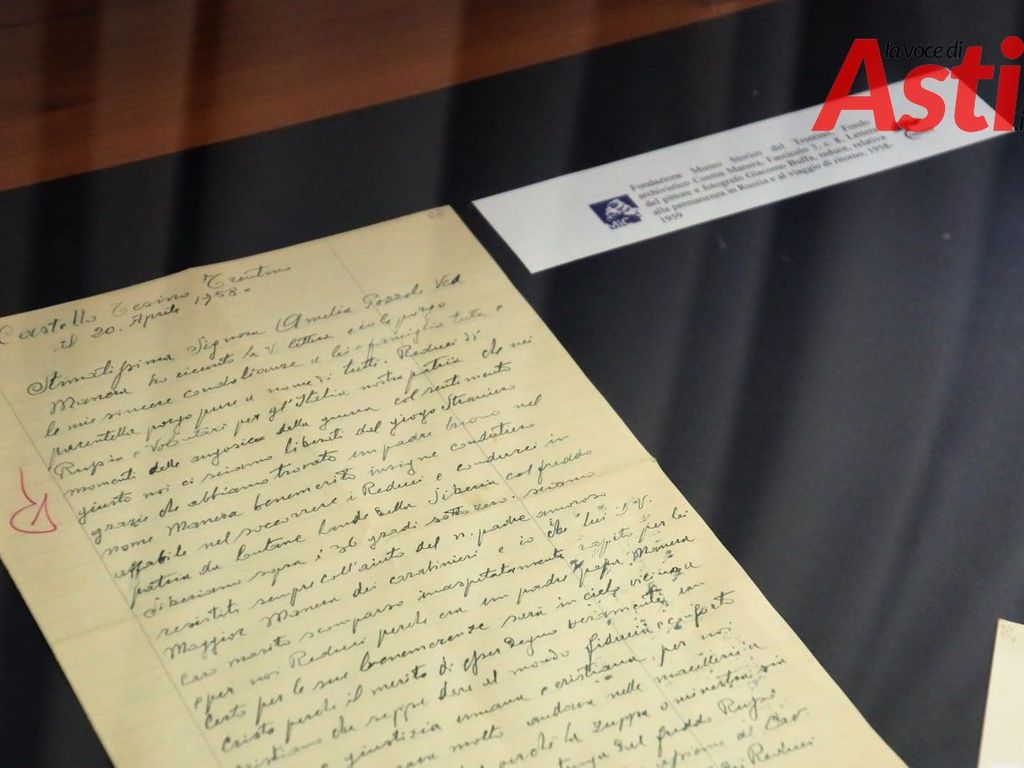 la voce di
Asti
Fondazione Museo Storico del Trentino, Fondo
archivistico Cosma Manera, Fascicolo 3, c. 8. Lettera
del pittore e fotografo Giacomo Buffa, reduce, relativa
alla permanenza in Russia e al viaggio di ritorno, 1958-
1959
MIC
Castello Tesino Trentino
il 20. Aprile 1958.
Stimatissima Signora Amelia Pozzolo Ved
Manera ho ricevuto la V. lettera e io le porgo
le mie sincere condoglianze a lei e famiglia tutta e
parentella porgo pure a nome di tutti Reduci di
Russia e Volontari per gl'Italia nostra patria che nei
momenti delle angosie della guerra col sentimento
giusto noi ci seiamo liberati del giogo Straniero
grazie che abbiamo trovato un padre buono nel
nome Manera benemerito insigne condottiero
affabile nel soccorrere i Reduci e condurci in
patria da lontane lande della Siberia col freddo
Siberiano sopra i 36 gradi sotto zero. seiamo
resistiti sempre coll'aiuto del n. padre amoroso
Maggior Manera dei carabinieri e io che lui I V.
caro marito scomparso inaspettatamente rapito per lei
e per noi Reduci perche era un padre papa Manera
certo per le sue benemerenze sera in cielo vicino a
Cristo perche il merito di esser degno veramente un
cristiano che seppe dare al mondo fiducia e conforto
e giustizia umana e cristiana, per noi
molto andava nelle macellerie a
la zuppa o minestra
del freddo
Reduci